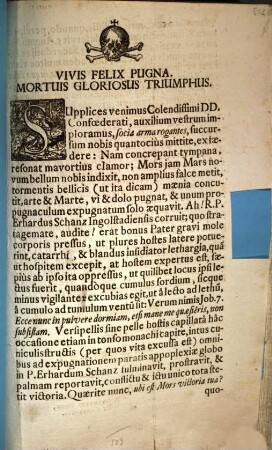 VIVIS FELIX PUGNA.
MORTUIS GLORIOSUS TRIUMPHUS.
SUpplices venimus Colendissimi DD.
Confœderati, auxilium vestrum im-
ploramus, socia arma rogantes, succur-
sum nobis quantocius mittite, ex fæ-
dere: Nam concrepant tympana,
resonat mavortius clamor; Mors jam Mars no-
vum bellum nobis indixit, non amplius falce metit,
tormentis bellicis (ut ita dicam) mænia concu-
tit, arte & Marte, vi & dolo pugnat, & unum pro-
pugnaculum expugnatum solo æquavit. Ah! R.P.
Erhardus Schanz Ingolstadiensis corruit; quo stra-
tagemate, audite! erat bonus Pater gravi mole
corporis pressus, ut plures hostes latere potue-
rint, catarrhi, & blandus insidiator lethargia, quã
ut hospitem excepit, at hostem expertus est, sæ-
pius ab ipso ita oppressus, ut quilibet locus ipsi le-
ctus fuerit, quandoque cumulus sordium, sicque
minus vigilanter excubias egit, ut à lecto ad lethũ,
à cumulo ad tumulum ventũ sit: Verum nimis Job. 7.
Ecce nunc in pulvere dormiam, etsi mane me quæsieris, non
subsistam. Versipellis sine pelle hostis capillatã hâc
occasione etiam in tonso monachi capite, intus cu-
niculis structis (per quos vita excussa est) omni-
bus ad expugnationem paratis appoplexiæ globo
in P. Erhardum Schanz fulminavit, prostravit, &
palmam reportavit, conflictu & ictu unico tota ste-
tit victoria. Quærite nunc, ubi est Mors victoria tua?
quo-